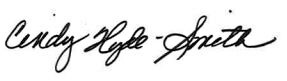 Cindy Hyde-Smith